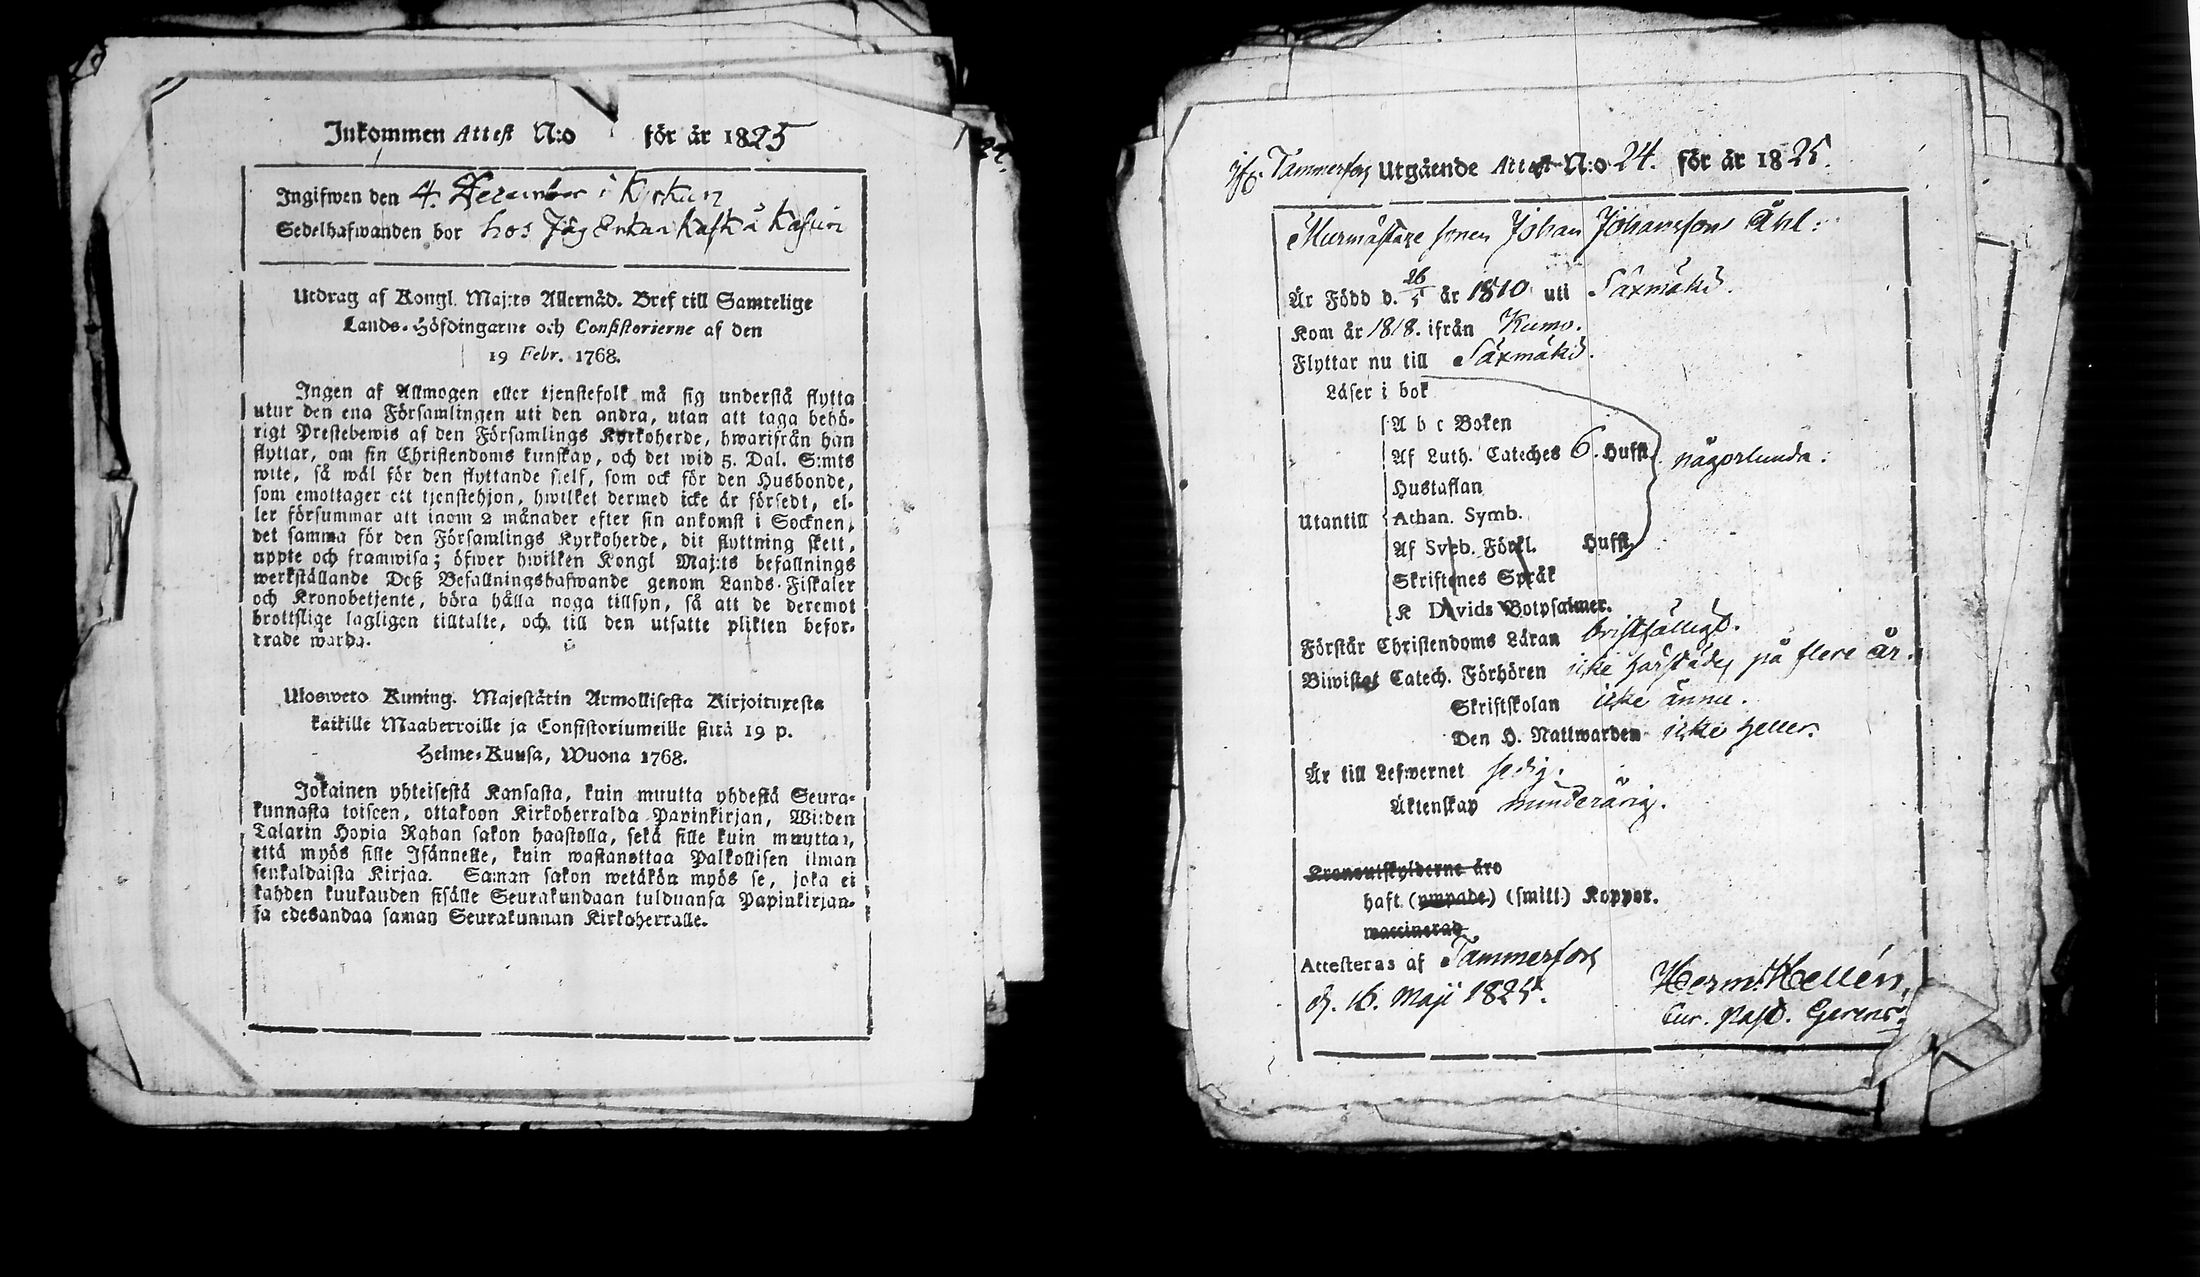 Inkommen Attest N:o för år 1825
Ingifwen den 4. December i Kyrkan
Sedelhafwanden bor hos Jäg Enkan
Utdrag af Kongl. Maj:ts Allernåd. Bref till Samtelige
Lands-Höfdingarne och Consistorierne af den
19 Febr. 1768.
Ingen af Allmogen eller tjenstefolk må sig understå flytta
utur den ena Församlingen uti den andra, utan att taga behö-
rigt Prestebewis af den Församlings Kyrkoherde, hwarifrån han
flyttar, om sin Christendoms kunskap, och det wid 5. Dal. S:mts
wite, så wäl för den flyttande sielf, som ock för den Husbonde,
som emottager ett tjenstehjon, hwilket dermed icke är försedt, el-
ler försummar att inom 2 månader efter sin ankomst i Socknen,
det samma för den Församlings Kyrkoherde, dit flyttning skett,
uppte och framwisa; öfwer hwilken Kongl Maj:ts befallnings
werkställande Deß Befallningshafwande genom Lands-Fiskaler
och Kronobetjente, böra hålla noga tillsyn, så att de deremot
brottslige lagligen tilltalte, och till den utsatte plikten befor-
drade warda.
Ulosweto Kuning. Majestätin Armollisesta Kirjoituxesta
kaikille Maaherroille ja Consistoriumeille siitä 19 p.
Helme-Kuusa, Wuona 1768.
Jokainen yhteisestä Kansasta, kuin muutta yhdestä Seura-
kunnasta toiseen, ottakoon Kirkoherralda Papinkirjan, Wiiden
Talarin Hopia Rahan sakon haastolla, sekä sille kuin muuttaa,
että myös sille Isännelle, kuin wastanottaa Palkollisen ilman
senkaldaista Kirjaa. Saman sakon wetäkön myös se, joka ei
kahden kuukauden sisälle Seurakundaan tulduansa Papinkirjan-
sa edesandaa saman Seurakunnan Kirkoherralle.
24.
Tammerfors Utgående Attest N:o 24. för år 1825.
Murmästare sonen Johan Johansson Åhl:
Är Född d. 26/5 år 1810 uti Säxmäki.
Kom år 1818. ifrån Kumo.
Flyttar nu till Säxmäki.
Läser i bok
A b c Boken
Af Luth. Cateches 6. Hufst. någorlunda.
Hustaflan
Utantill Athan. Symb.
Af Sveb. Förkl. Hufst.
Skriftenes Språk
K Davids Botpsalmer.
Förstår Christendoms Läran bristfälligt.
Biwistat Catech. Förhören icke härstädes på flere år.
Skriftskolan icke ännu.
Den H. Nattwarden icke heller.
Är till Lefwernet sedig.
Äktenskap minderårig.
Kronoutskylderne äro
haft (ympade) (smitt.) Koppor.
waccinerad
Attesteras af Tammerfors
d. 16. Maji 1825. Herm. Hellén,
Cur. Past. Gerens.